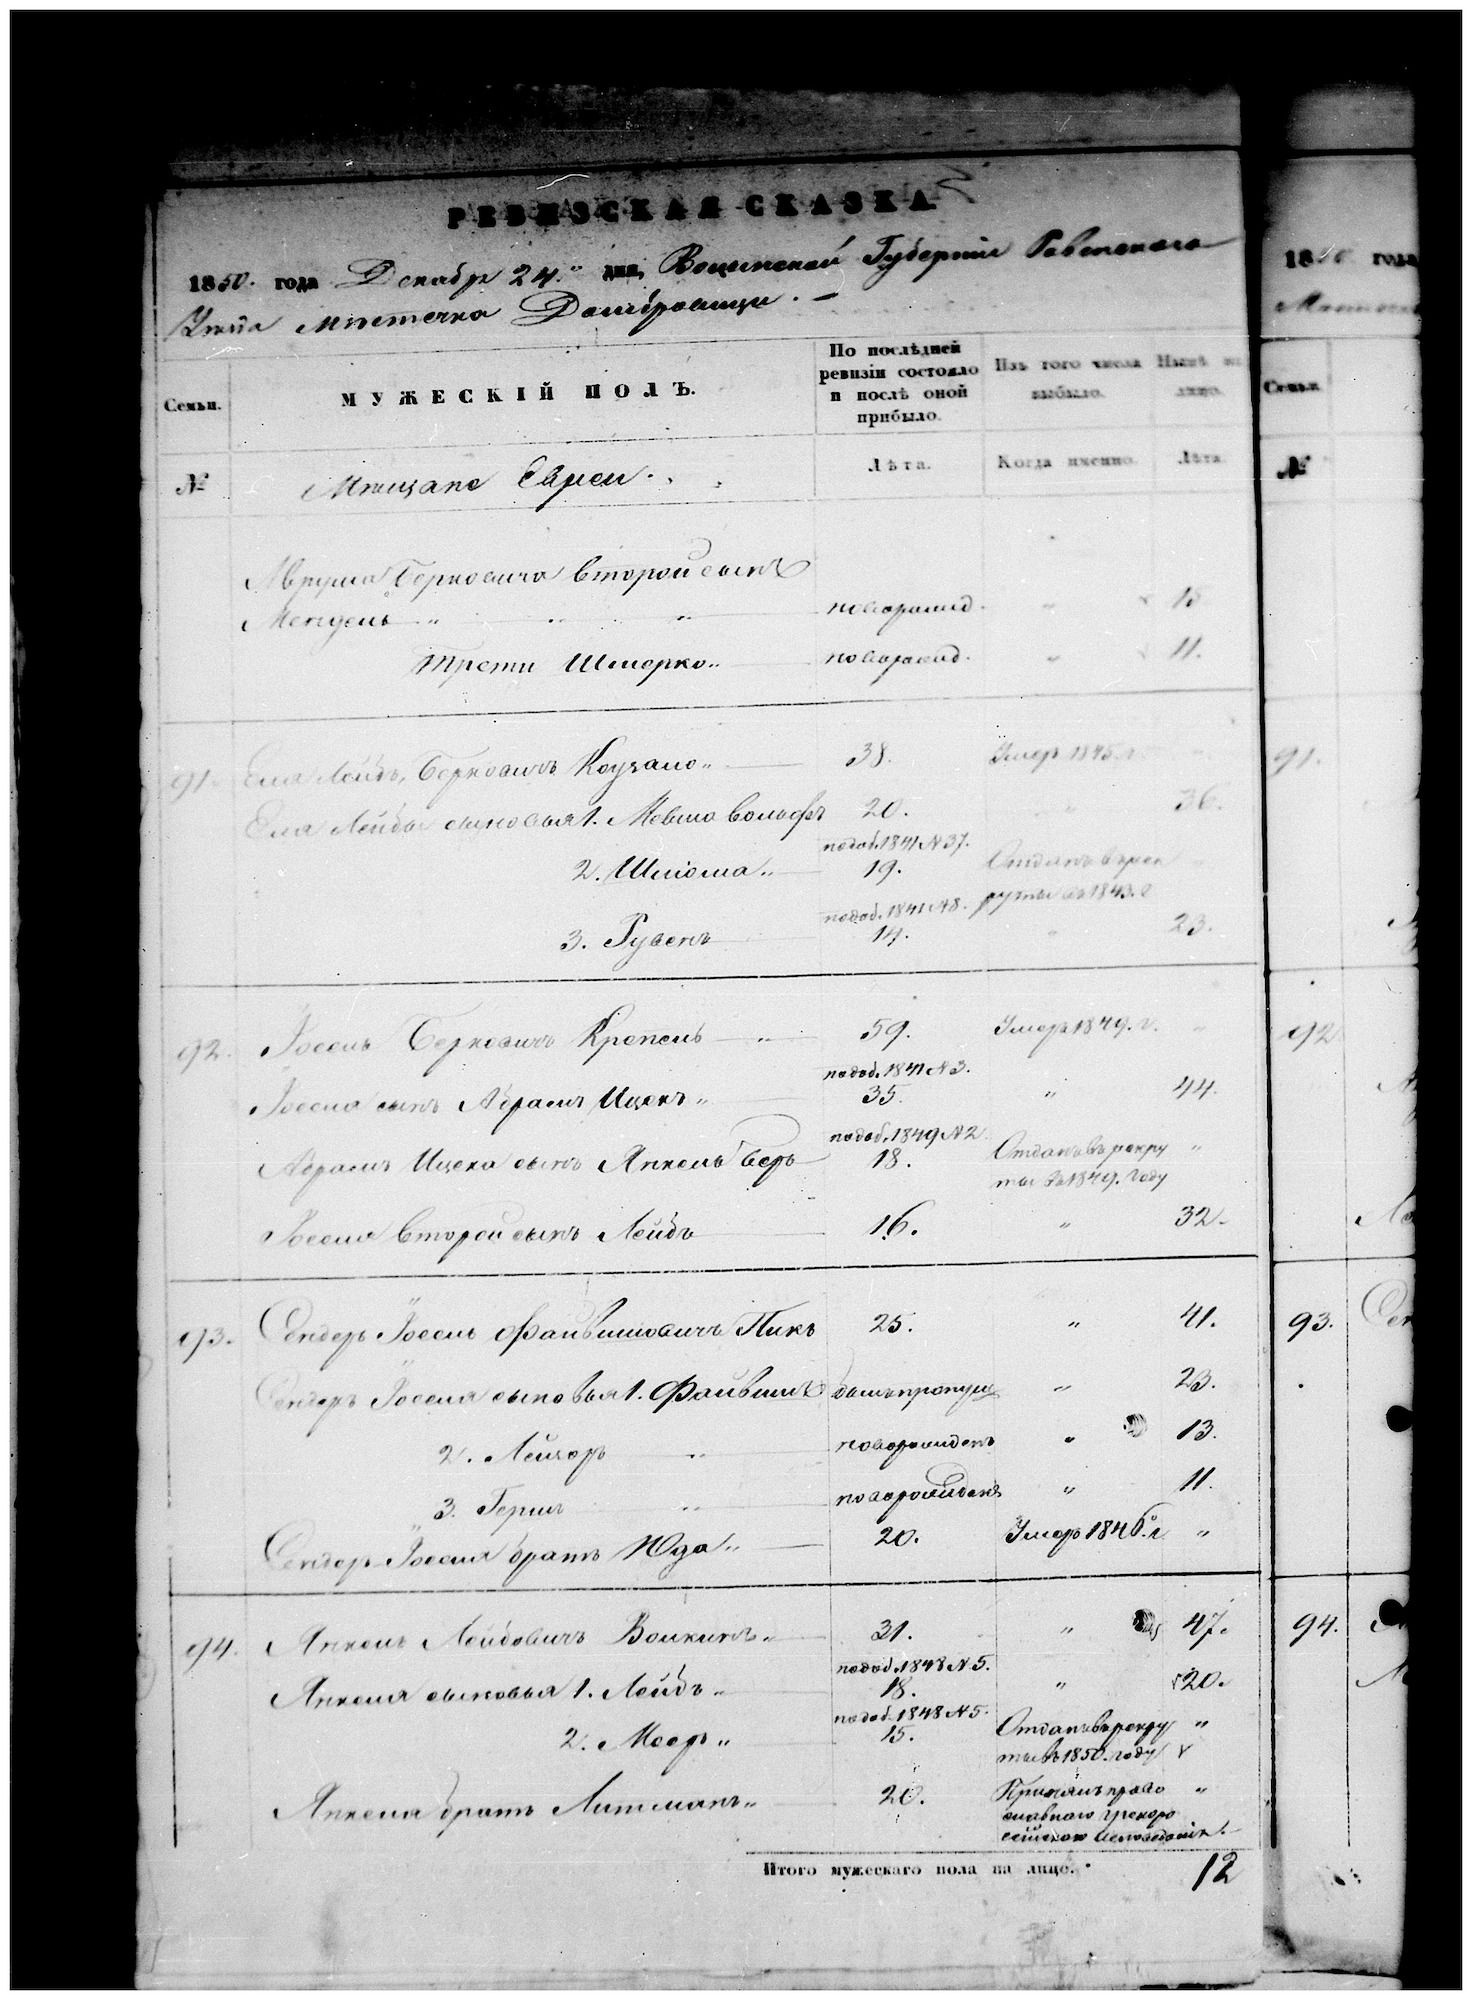 РЕВИЗСКАЯ СКАЗКА.
1850. года Декабр 24." дня, Волынской Губернии Ровенского
Уезда местечка Домбровицы. —
Семьи.
МУЖЕСКІЙ ПОЛЪ.
По послѣдней ревизіи состояло и послѣ оной прибыло.
Изъ того числа выбыло.
Нынѣ на лицо.
№
Мещане Евреи.
Лѣта.
Когда именно.
Лѣта.
Аврума Берковича второй сынъ
Мендель " " " новорожд. " 15
Трети Шмерко " новорожд. " 11.
91. Еля Лейбъ Берковичъ 38. Умеръ 1845. г "
Еля Лейбы сыновья 1. Мевша Вольфъ 20. " 36.
подоб. 1841 N 37.
2. Шлiома " 19. Отданъ въ рек "
руты въ 1843. г
подоб. 1841 N 8.
3. Рувенъ 14. " 23.
92. Іосель Берковичъ Крепель " 59. Умеръ 1849. г. "
подоб. 1841 N 3.
Іоселя сынъ Абрамъ Ицекъ " 35. " 44.
подоб. 1849 N 2
Абрамъ Ицека сынъ Янкель Беръ 18. Отданъ въ рекру "
ты въ 1849. году
Іоселя второй сынъ Лейбъ 16. " 32.
93. Сендеръ Іосель Файвишовичъ Пикъ 25. " 41.
Сендеръ Іоселя сыновья 1. Файвишъ былъ пропущ " 23.
2. Лейзоръ " новорожденъ " 13.
3. Герш " новорожденъ " 11.
Сендеръ Іоселя братъ Юда " 20. Умеръ 1846. г "
94. Янкель Лейбовичъ Волкинъ " 31. " 47.
подоб. 1848 N 5.
Янкеля сыновья 1. Лейбъ " 18. " 20.
подоб. 1848 N 5.
2. Меер " 15. Отданъ въ рекру "
ты въ 1850. году
Янкеля братъ Литманъ " 20. Принялъ право "
славнаго грекоро
сійскаго исповеданія.
Итого мужескаго пола на лицо. 12
1850 года
Семьи.
№
91.
92
93. Сен
94.